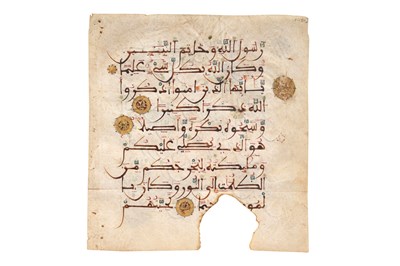 رسول الله وخاتم النبيين
وكان الله بكل شيء عليما
يايها الذين امنوا اذكروا
الله ذكرا كثيرا
وسبحوه بكرة واصيلا
هو الذي يصلي عليكم
ومليكته ليخرجكم من
الظلمت الى النور وكان با
لمومنين تحيتهم